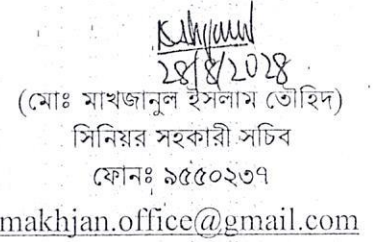 28/8/2028
(মোঃ মাখজানুল ইসলাম তৌহিদ)
সিনিয়র সহকারী সচিব
ফোনঃ ৯৫৫০২৩৭
makhjan.office@gmail.com